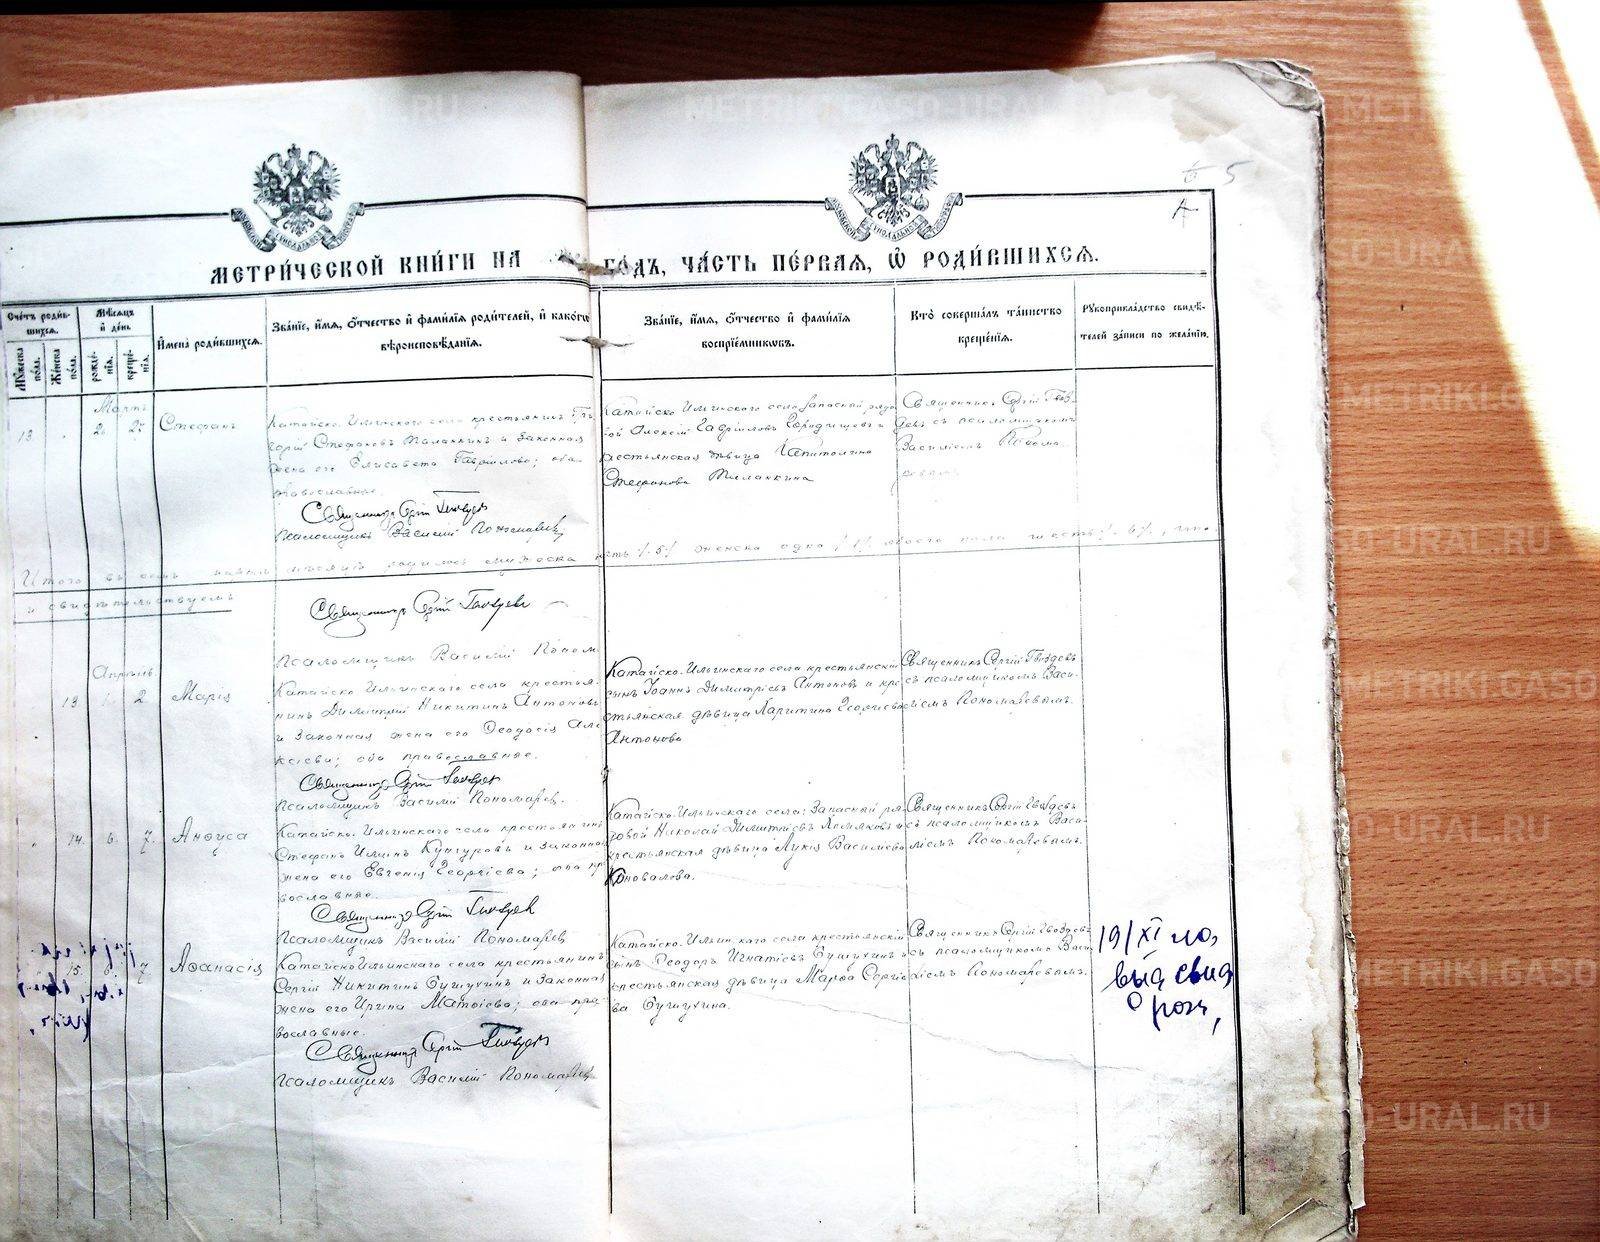 METRIKI.GASO-URAL.RU
5
А
МЕТРИ́ЧЕСКОЙ КНИ́ГИ НА ГО́ДЪ, ЧА́СТЬ ПЕ́РВАЯ, Ѡ РОДИ́ВШИХСЯ.
Сче́тъ роди́вшихся.
Му́жеска по́ла.
Же́нска по́ла.
Мѣ́сяцъ и́ де́нь
рожде́нія.
креще́нія.
И́мена̀ роди́вшихся.
Зва́ніе, и́мя, о́тчество и́ фами́лія роди́телей, и́ како́гѡ
вѣроисповѣ́данія.
Зва́ніе, и́мя, о́тчество и́ фами́лія
воспріе́мникѡвъ.
Кто̀ соверша́лъ та́инство
креще́нія.
Рукоприкла́дство свидѣ́-
телей за́писи по жела́нію.
Мартъ
13 25 Стефанъ
Катайско-Ильинского села крестьянинъ
Стефановъ Пиланкинъ и законная
жена его Елисавета Гаврилова; оба
православные.
Священникъ Сергій Гвоздевъ
Псаломщикъ Василій Пономаревъ
Катайско-Ильинского села запасный рядо-
вой Алексій Гавріиловъ Городищевъ и
крестьянская дѣвица Капитолина
Стефанова Пиланкина
Священникъ Сергій Гвоз-
девъ съ псаломщикомъ
Василіемъ Понома-
ревымъ
Итого въ семъ мѣсяцѣ родилось мужеска пять /.5./ женска одна /.1./ обоего пола шесть /.6./, что
и свидѣтельствуемъ
Священникъ Сергій Гвоздевъ
Псаломщикъ Василій Поном
Апрѣль
13 1. 2 Марія
Катайско-Ильинскаго села крестья-
нинъ Димитрій Никитинъ Антоновъ
и законная жена его Ѳеодосія Але-
ксѣева; оба православные.
Священникъ Сергій Гвоздевъ
Псаломщикъ Василій Пономаревъ.
Катайско-Ильинскаго села крестьянскій
сынъ Іоаннъ Димитріевъ Антоновъ и кре-
стьянская дѣвица Харитина Георгіева
Антонова
Священникъ Сергій Гвоздевъ
съ псаломщикомъ Васи-
ліемъ Пономаревымъ.
14. 6. 7. Анѳуса
Катайско-Ильинскаго села крестьянинъ
Стефанъ Ильинъ Кунгуровъ и законная
жена его Евгенія Георгіева; оба пр
вославные.
Священникъ Сергій Гвоздевъ
Псаломщикъ Василій Пономаревъ
Катайско-Ильинскаго села: Запасный ря-
довой Николай Димитріевъ Хомяковъ и
крестьянская дѣвица Лукія Василіева
Коновалова.
Священникъ Сергій Гвоздевъ
съ псаломщикомъ Васи-
ліемъ Пономаревымъ.
15. 6 7 Аѳанасія
Катайско-Ильинскаго села крестьянинъ
Сергій Никитинъ Бушухинъ и законная
жена его Ирина Матѳіева; оба пра-
вославные.
Священникъ Сергій Гвоздевъ
Псаломщикъ Василій Пономаревъ
Катайско-Ильинскаго села крестьянскій
сынъ Ѳеодоръ Игнатіевъ Бушухинъ и
крестьянская дѣвица Марѳа Сергіе-
ва Бушухина.
Священникъ Сергій Гвоздевъ
съ псаломщикомъ Васи-
ліемъ Пономаревымъ.
19/XI
выд свид
о рожд,